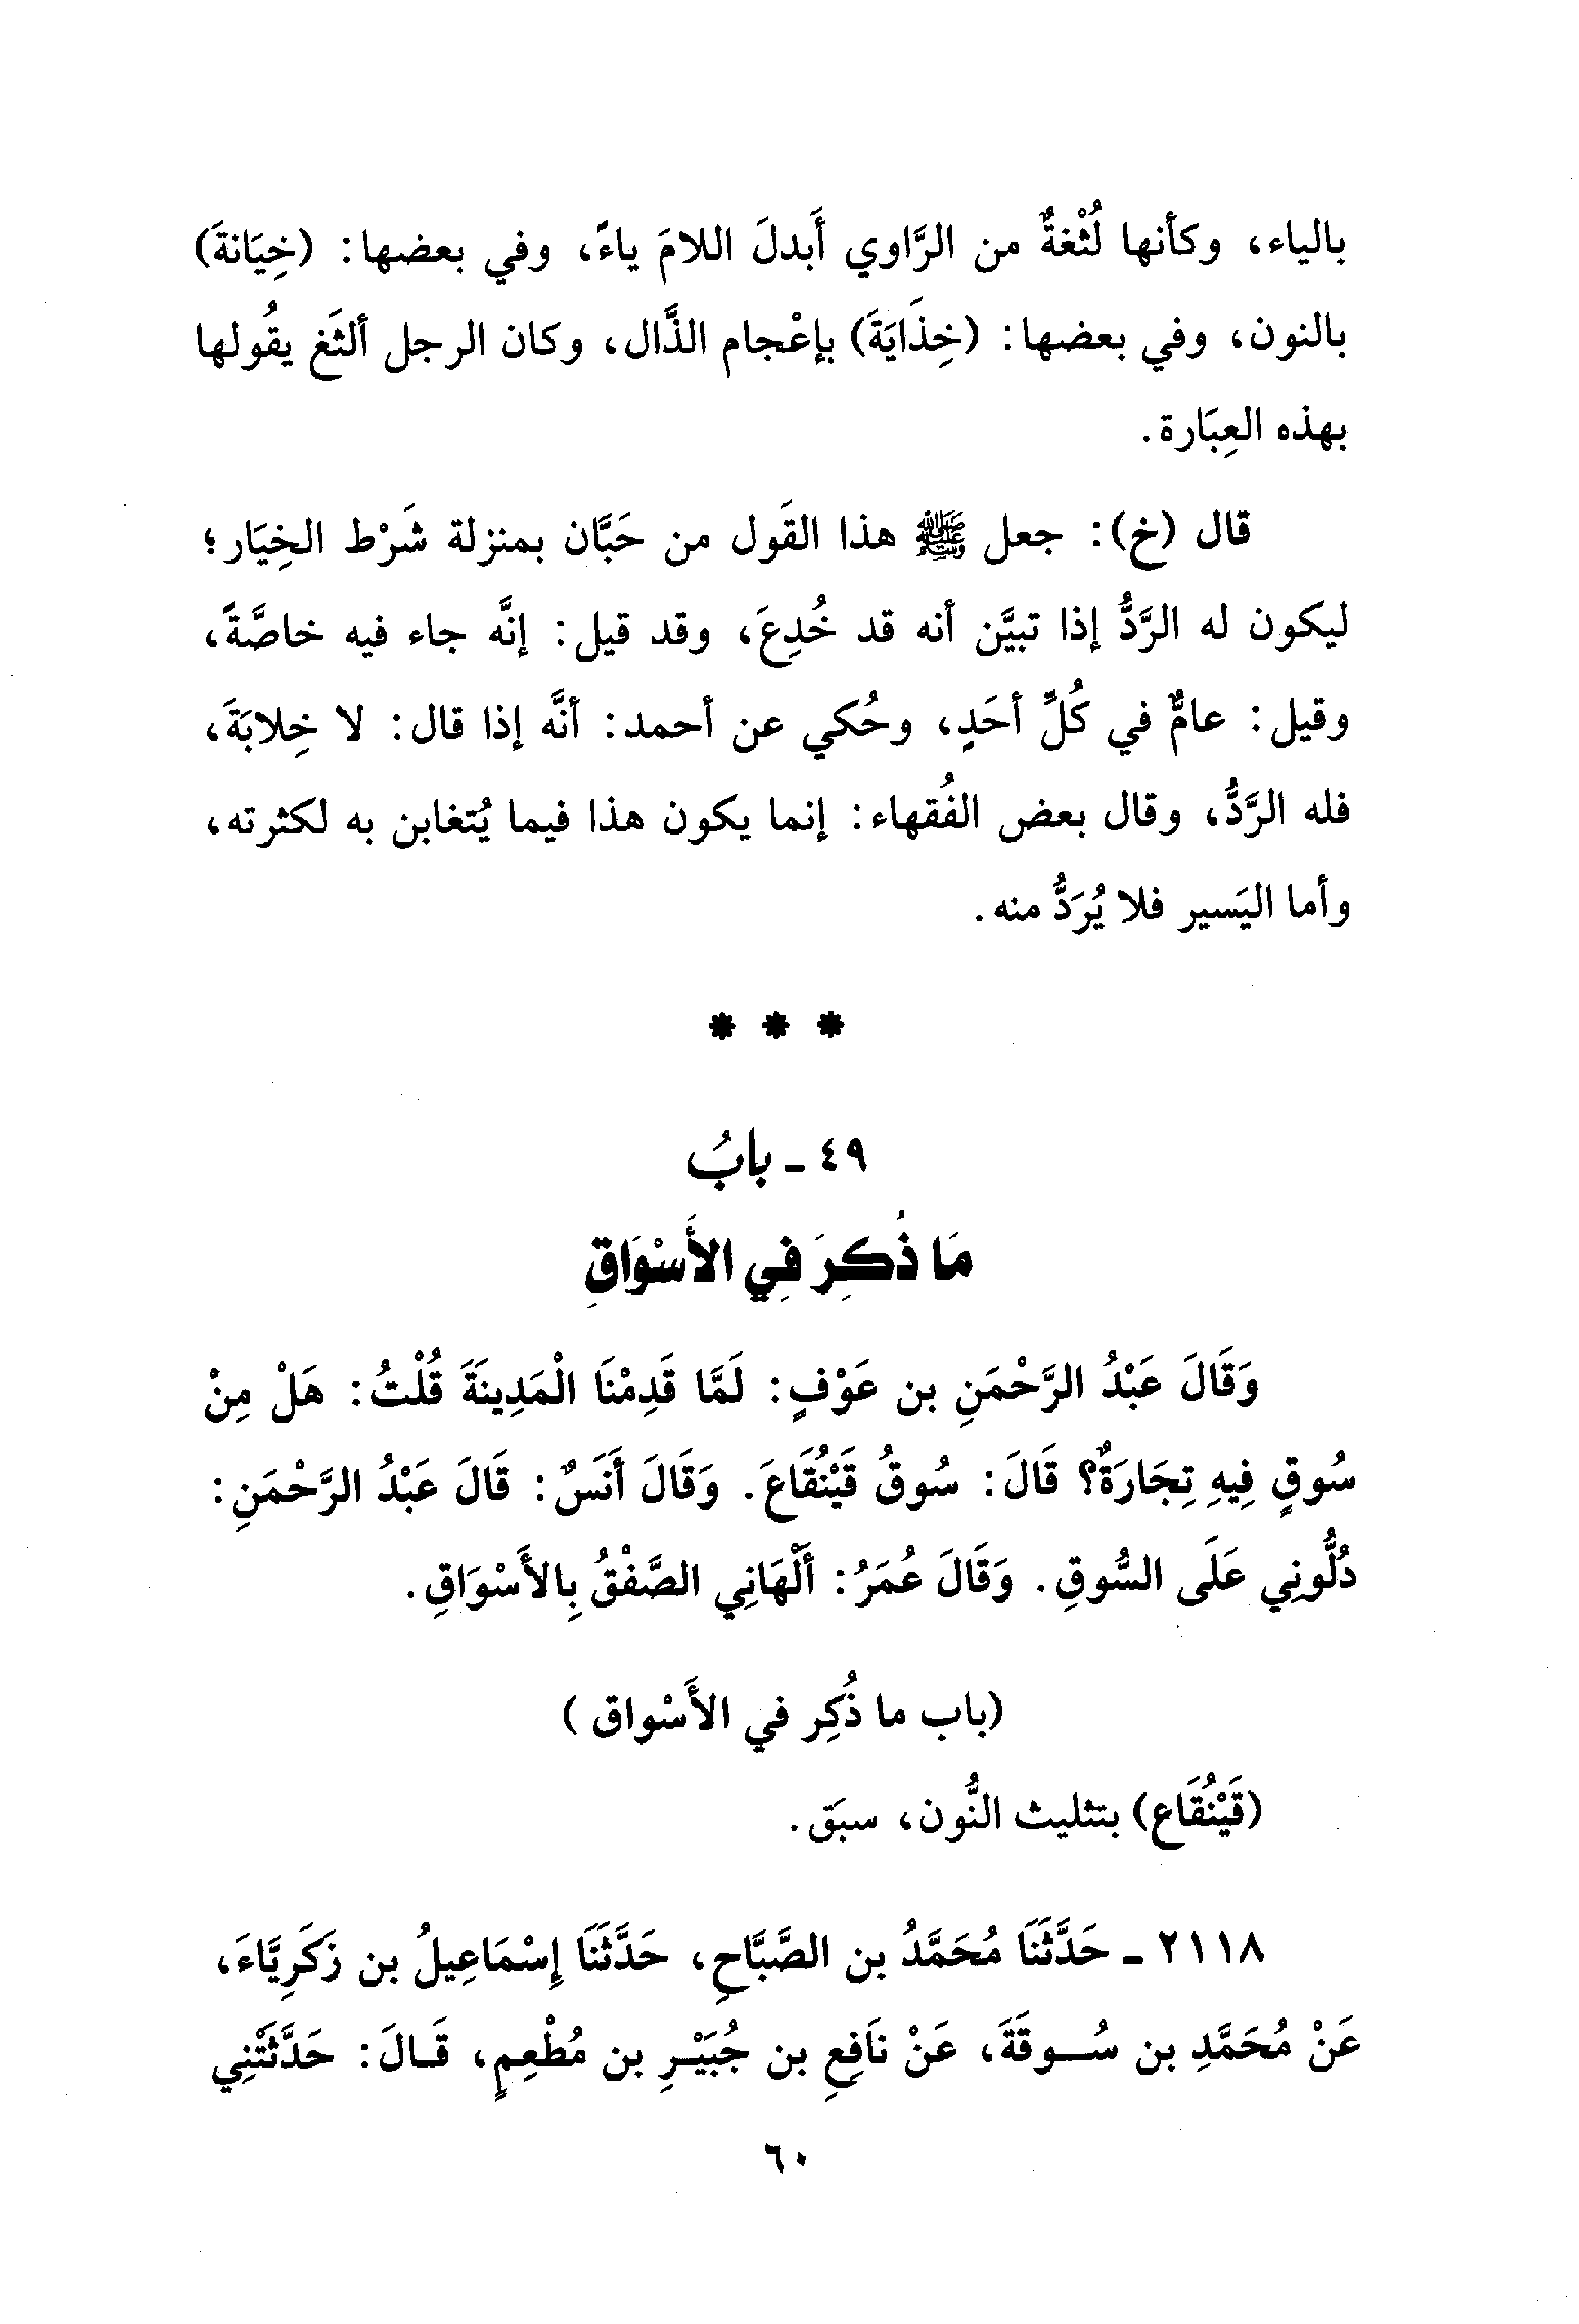 بالياء، وكأنها لُثْغةٌ من الرَّاوي أَبدلَ اللامَ ياءً، وفي بعضها: (خِيَانةَ)
بالنون، وفي بعضها: (خِذَايَةَ) بإعْجام الذَّال، وكان الرجل ألثَغ يقُولها
بهذه العِبَارة.
قال (خ): جعل ﷺ هذا القَول من حَبَّان بمنزلة شَرْط الخِيَار؛
ليكون له الرَّدُّ إذا تبيَّن أنه قد خُدِعَ، وقد قيل: إنَّه جاء فيه خاصَّةً،
وقيل: عامٌّ في كُلِّ أحَدٍ، وحُكي عن أحمد: أنَّه إذا قال: لا خِلابَةَ،
فله الرَّدُّ، وقال بعض الفُقهاء: إنما يكون هذا فيما يُتغابن به لكثرته،
وأما اليَسير فلا يُرَدُّ منه.
* * *
٤٩ - بابُ
مَا ذُكِرَ فِي الأَسْوَاقِ
وَقَالَ عَبْدُ الرَّحْمَنِ بن عَوْفٍ: لَمَّا قَدِمْنَا الْمَدِينَةَ قُلْتُ: هَلْ مِنْ
سُوقٍ فِيهِ تِجَارَةٌ؟ قَالَ: سُوقُ قَيْنُقَاعَ. وَقَالَ أَنَسٌ: قَالَ عَبْدُ الرَّحْمَنِ:
دُلُّونِي عَلَى السُّوقِ. وَقَالَ عُمَرُ: أَلْهَانِي الصَّفْقُ بِالأَسْوَاقِ.
(باب ما ذُكِر في الأَسْواق)
(قَيْنُقَاع) بتثليث النُّون، سبَق.
٢١١٨ - حَدَّثَنَا مُحَمَّدُ بن الصَّبَّاحِ، حَدَّثَنَا إِسْمَاعِيلُ بن زَكَرِيَّاءَ،
عَنْ مُحَمَّدِ بن سُـوقَةَ، عَنْ نَافِعِ بن جُبَيْـرِ بن مُطْعِمٍ، قَـالَ: حَدَّثَتْنِي
٦٠